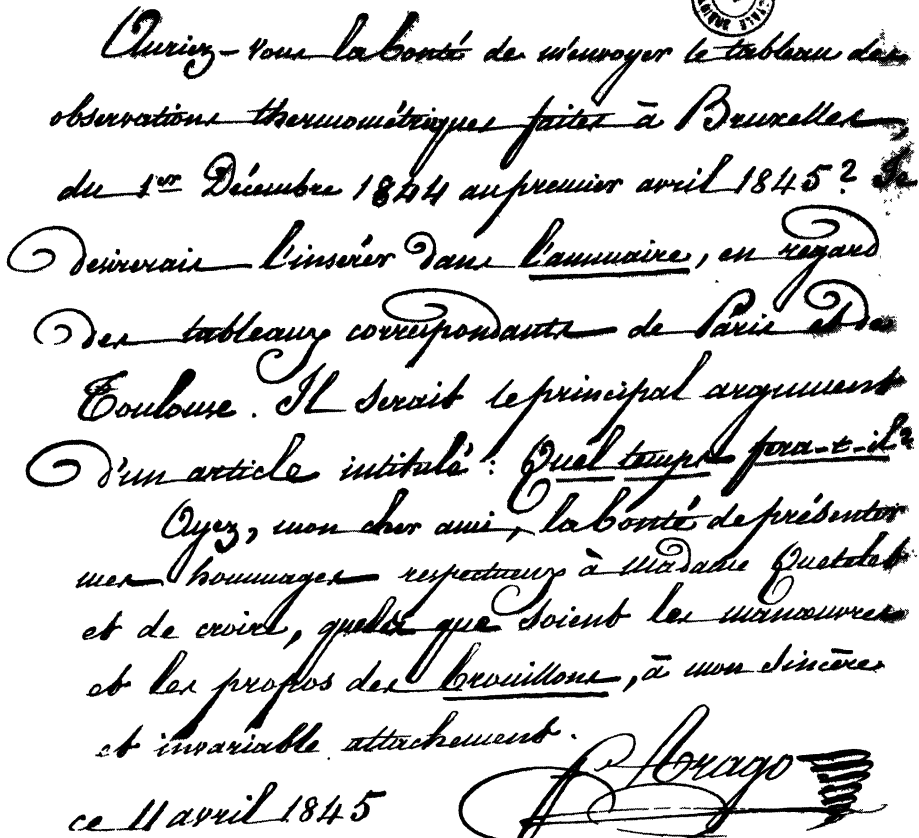 Auriez-vous la bonté de m'envoyer le tableau des
observations thermométriques faites à Bruxelles,
du 1er Décembre 1844 au premier avril 1845? Je
desirerais l'insérer dans l'annuaire, en regard
des tableaux correspondants de Paris et de
Toulouse. Il serait le principal argument
d'un article intitulé: Quel temps fera-t-il?
Ayez, mon cher ami, la bonté de présenter
mes hommages respectueux à madame Quetelet
et de croire, quels que soient les manœuvres
et les propos des brouillons, à mon sincère
et invariable attachement.
F. Arago
ce 11 avril 1845